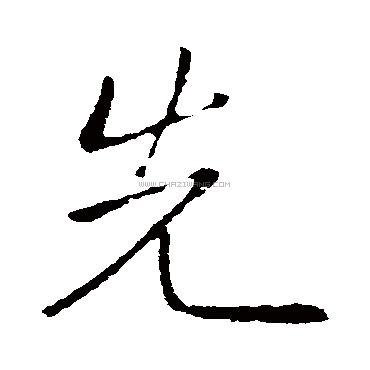 先
WWW.CHAZIWANG.COM